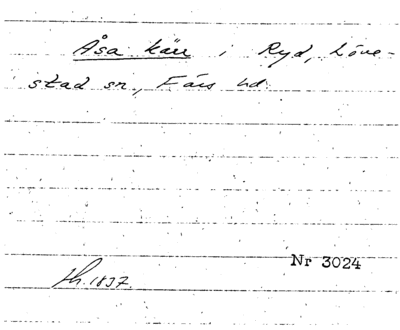 Åsa kärr i Ryd, Löve-
stad sn., Färs hd.
Nr 3024
h. 1837.